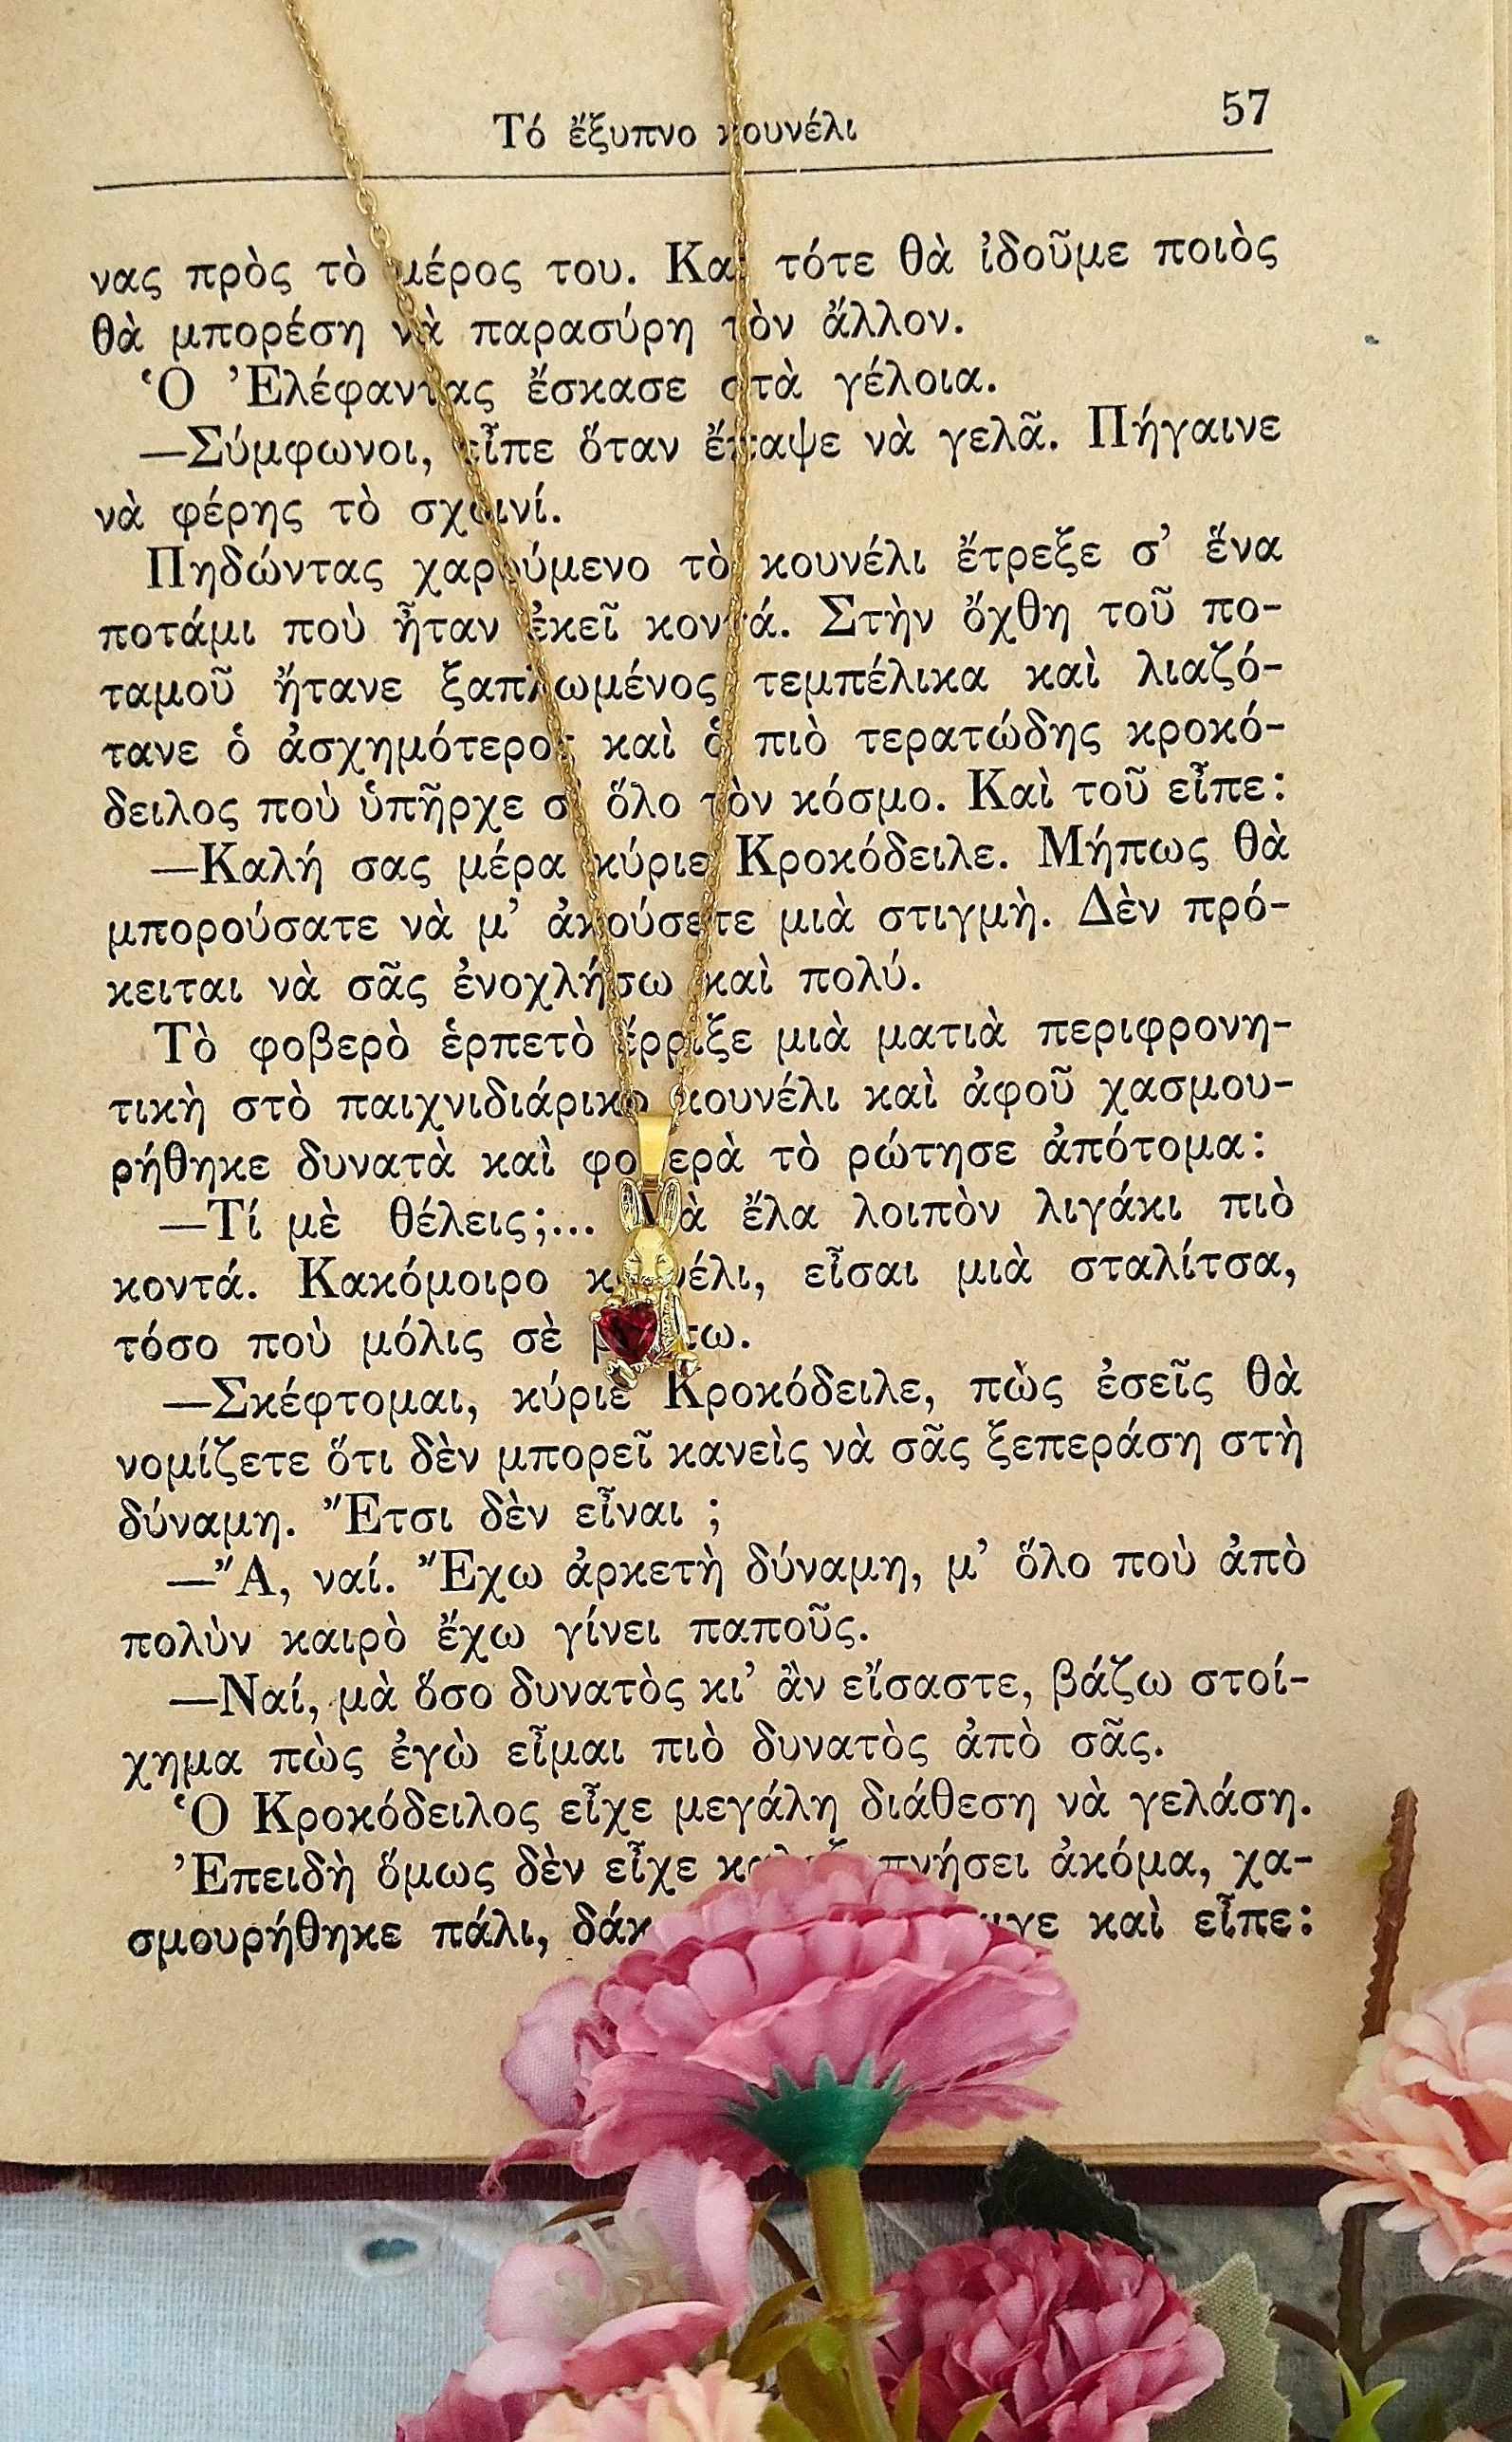 Τό ἔξυπνο κουνέλι
57
νας πρὸς τὸ μέρος του. Καὶ τότε θὰ ἰδοῦμε ποιὸς
θὰ μπορέση νὰ παρασύρη τὸν ἄλλον.
Ὁ Ἐλέφαντας ἔσκασε στὰ γέλοια.
—Σύμφωνοι, εἶπε ὅταν ἔπαψε νὰ γελᾶ. Πήγαινε
νὰ φέρης τὸ σχοινί.
Πηδώντας χαρούμενο τὸ κουνέλι ἔτρεξε σ’ ἕνα
ποτάμι ποὺ ἦταν ἐκεῖ κοντά. Στὴν ὄχθη τοῦ πο-
ταμοῦ ἤτανε ξαπλωμένος τεμπέλικα καὶ λιαζό-
τανε ὁ ἀσχημότερος καὶ ὁ πιὸ τερατώδης κροκό-
δειλος ποὺ ὑπῆρχε σ’ ὅλο τὸν κόσμο. Καὶ τοῦ εἶπε:
—Καλή σας μέρα κύριε Κροκόδειλε. Μήπως θὰ
μπορούσατε νὰ μ’ ἀκούσετε μιὰ στιγμὴ. Δὲν πρό-
κειται νὰ σᾶς ἐνοχλήσω καὶ πολύ.
Τὸ φοβερὸ ἑρπετὸ ἔρριξε μιὰ ματιὰ περιφρονη-
τικὴ στὸ παιχνιδιάρικο κουνέλι καὶ ἀφοῦ χασμου-
ρήθηκε δυνατὰ καὶ φοβερὰ τὸ ρώτησε ἀπότομα:
—Τί μὲ θέλεις;... ἔλα λοιπὸν λιγάκι πιὸ
κοντά. Κακόμοιρο κουνέλι, εἶσαι μιὰ σταλίτσα,
τόσο ποὺ μόλις σὲ
—Σκέφτομαι, κύριε Κροκόδειλε, πὼς ἐσεῖς θὰ
νομίζετε ὅτι δὲν μπορεῖ κανεὶς νὰ σᾶς ξεπεράση στὴ
δύναμη. Ἔτσι δὲν εἶναι ;
—Ἄ, ναί. Ἔχω ἀρκετὴ δύναμη, μ’ ὅλο ποὺ ἀπὸ
πολὺν καιρὸ ἔχω γίνει παποῦς.
—Ναί, μὰ ὅσο δυνατὸς κι’ ἂν εἴσαστε, βάζω στοί-
χημα πὼς ἐγὼ εἶμαι πιὸ δυνατὸς ἀπὸ σᾶς.
Ὁ Κροκόδειλος εἶχε μεγάλη διάθεση νὰ γελάση.
Ἐπειδὴ ὅμως δὲν εἶχε ἀκόμα, χα-
σμουρήθηκε πάλι, καὶ εἶπε: